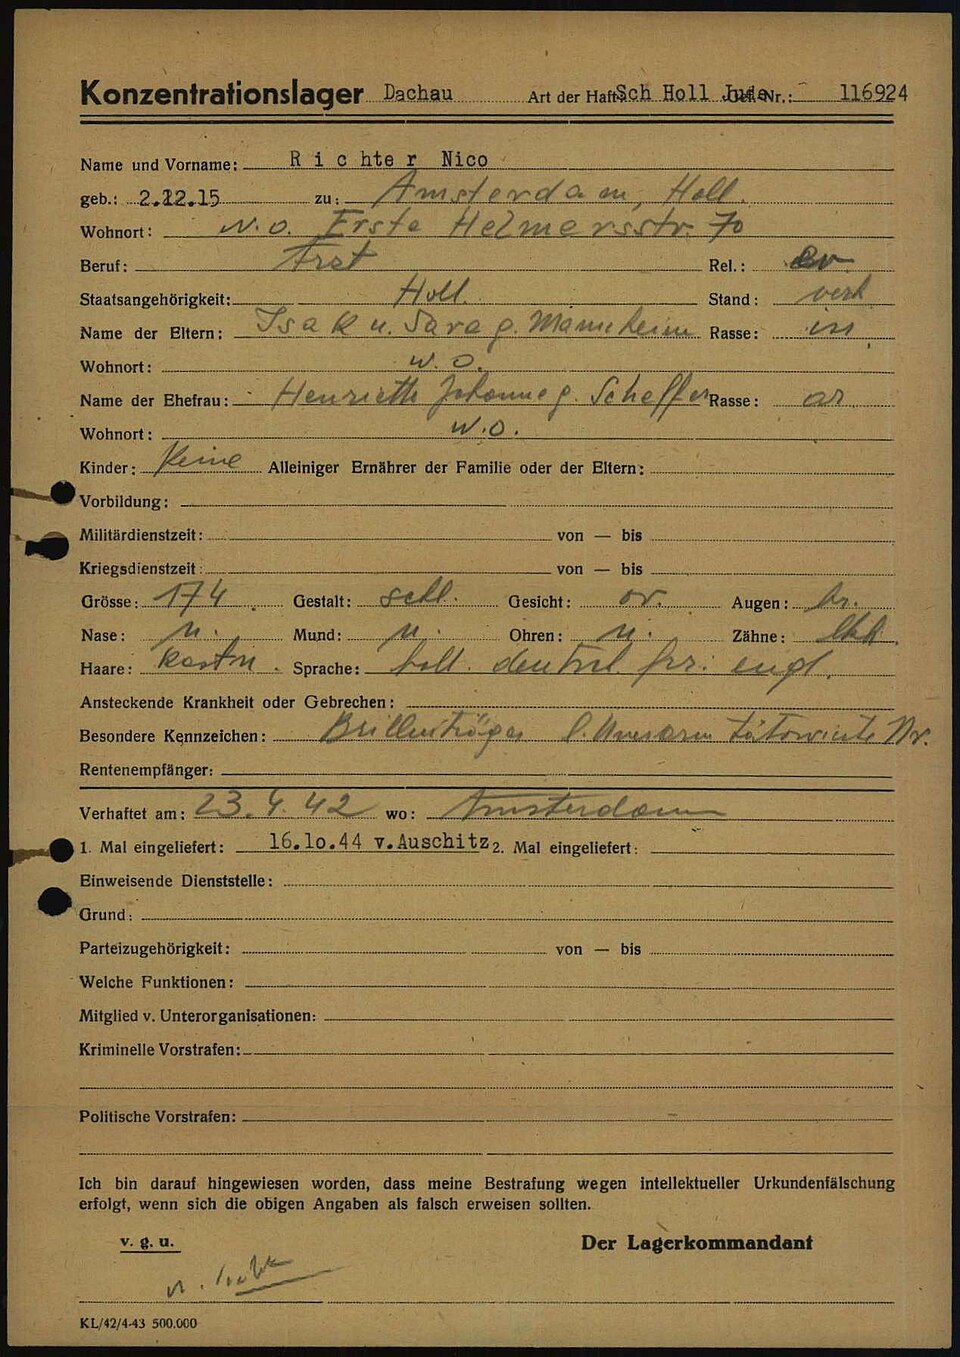 Konzentrationslager Dachau Art der Haft: Sch Holl Jude Gef.-Nr.: 116924
Name und Vorname: Richter Nico
geb.: 2.12.15 zu: Amsterdam, Holl.
Wohnort: w.o. Erste Helmersstr. 70
Beruf: Arzt Rel.: ev
Staatsangehörigkeit: Holl. Stand: verh
Name der Eltern: Isak u. Sara g. Mannheim Rasse:
Wohnort: w.o.
Name der Ehefrau: Henriette Johanne g. Scheffer Rasse: ar
Wohnort: w.o.
Kinder: keine Alleiniger Ernährer der Familie oder der Eltern:
Vorbildung:
Militärdienstzeit: von — bis
Kriegsdienstzeit: von — bis
Grösse: 174 Gestalt: schl. Gesicht: ov. Augen: br.
Nase: n. Mund: n. Ohren: n. Zähne:
Haare: kastn. Sprache: holl. deutsch. frz. engl.
Ansteckende Krankheit oder Gebrechen:
Besondere Kennzeichen: Brillenträger l. Unterarm tätowierte Nr.
Rentenempfänger:
Verhaftet am: 23.4.42 wo: Amsterdam
1. Mal eingeliefert: 16.10.44 v.Auschitz 2. Mal eingeliefert:
Einweisende Dienststelle:
Grund:
Parteizugehörigkeit: von — bis
Welche Funktionen:
Mitglied v. Unterorganisationen:
Kriminelle Vorstrafen:
Politische Vorstrafen:
Ich bin darauf hingewiesen worden, dass meine Bestrafung wegen intellektueller Urkundenfälschung
erfolgt, wenn sich die obigen Angaben als falsch erweisen sollten.
v. g. u. Der Lagerkommandant
KL/42/4-43 500.000